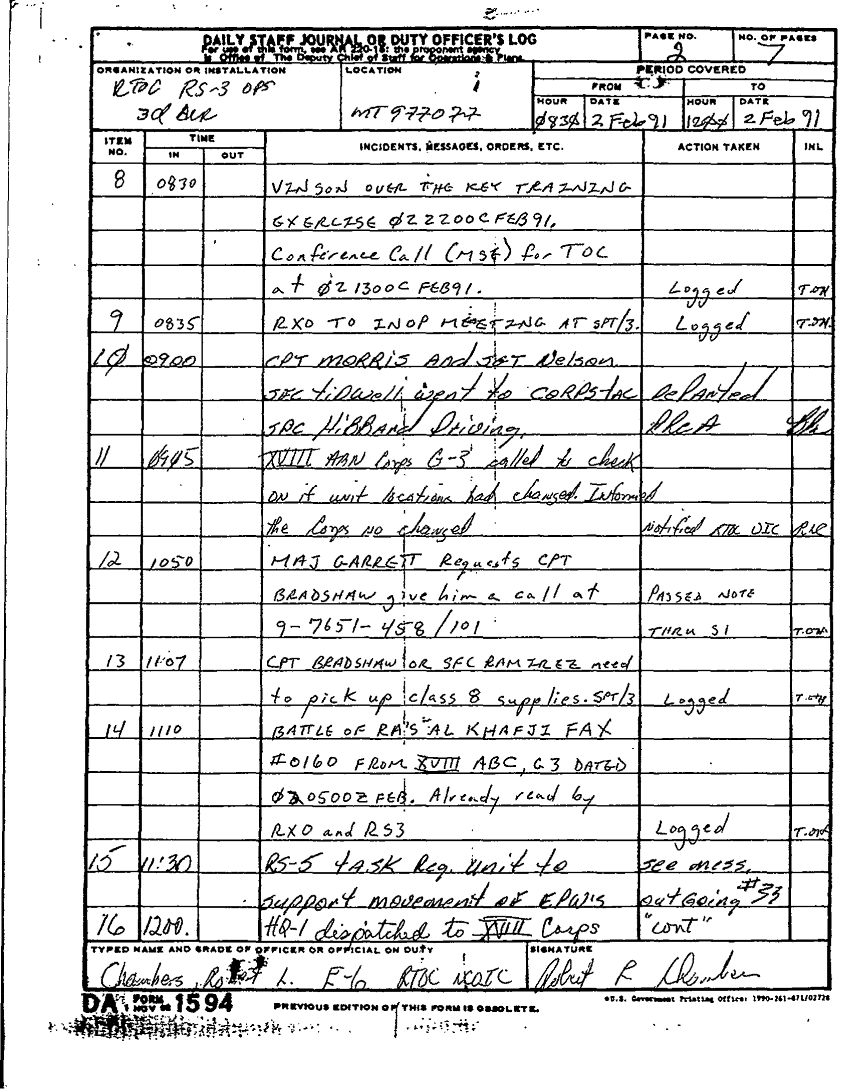 DAILY STAFF JOURNAL OR DUTY OFFICER'S LOG
For use of this form, see AR 220-15; the proponent agency
is Office of The Deputy Chief of Staff for Operations & Plans.
PAGE NO.
2
NO. OF PAGES
7
ORGANIZATION OR INSTALLATION
RTOC RS-3 OPS
3d
LOCATION
MT 977077
PERIOD COVERED
FROM TO
HOUR DATE HOUR DATE
0830 2 Feb 91 1200 2 Feb 91
ITEM NO. TIME IN OUT INCIDENTS, MESSAGES, ORDERS, ETC. ACTION TAKEN INL
8 0830 VINSON OVER THE KEY TRAINING
EXERCISE 022200C FEB91.
Conference Call (MSE) for TOC
at 021300C FEB91. Logged
9 0835 RXO TO INOP MEETING AT SPT/3. Logged
10 0900 CPT MORRIS And SGT Nelson
SFC tidwell went to CORPSTAC Departed
SPC HiBBard Driving. AREA
11 0945 XVIII ABN Corps G-3 called to check
on if unit locations had changed. Informed
the Corps no changed Notified RTOC OIC
12 1050 MAJ GARRETT Requests CPT
BRADSHAW give him a call at PASSED NOTE
9-7651-458/101 THRU S1
13 11:07 CPT BRADSHAW OR SFC RAMIREZ need
to pick up class 8 supplies. SPT/3 Logged
14 1110 BATTLE OF RA'S AL KHAFJI FAX
#0160 FROM XVIII ABC, G3 DATED
020500Z FEB. Already read by
RXO and RS3 Logged
15 11:30 RS-5 tASK Reg. unit to see mess.
support movement of EPW's outGoing #33
16 1200. HQ-1 dispatched to XVIII Corps "cont"
TYPED NAME AND GRADE OF OFFICER OR OFFICIAL ON DUTY
Chambers, Robert L. E-6 RTOC NCOIC
SIGNATURE
Robert R Chambers
DA FORM 1594
1 NOV 62
PREVIOUS EDITION OF THIS FORM IS OBSOLETE.
*U.S. Government Printing Office: 1990-261-871/02728